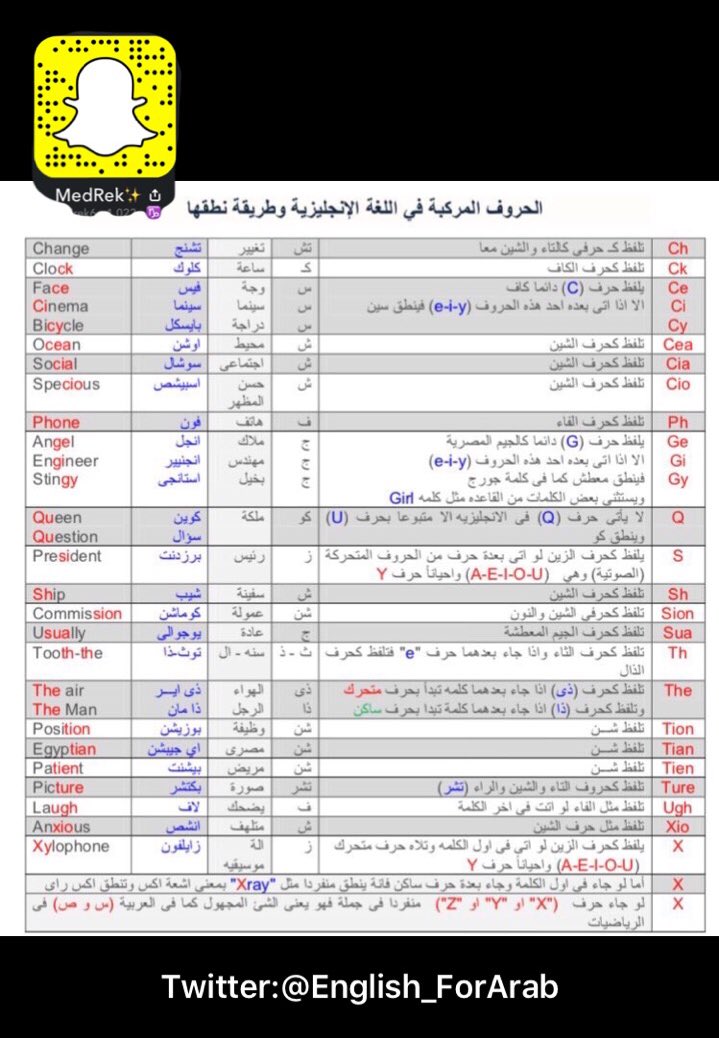 MedRek✨
الحروف المركبة في اللغة الإنجليزية وطريقة نطقها
Ch تلفظ كـ حرفي كالتاء والشين معا تش تغيير تشنج Change
Ck تلفظ كحرف الكاف كـ ساعة كلوك Clock
Ce يلفظ حرف (C) دائما كاف س وجة فيس Face
Ci الا اذا اتى بعده احد هذه الحروف (e-i-y) فينطق سين س سينما سينما Cinema
Cy س دراجة بايسكل Bicycle
Cea تلفظ كحرف الشين ش محيط اوشن Ocean
Cia تلفظ كحرف الشين ش اجتماعى سوشال Social
Cio تلفظ كحرف الشين ش حسن المظهر اسبيشص Specious
Ph تلفظ كحرف الفاء ف هاتف فون Phone
Ge يلفظ حرف (G) دائما كالجيم المصرية ج ملاك انجل Angel
Gi الا اذا اتى بعده احد هذه الحروف (e-i-y) ج مهندس انجنيير Engineer
Gy فينطق معطش كما فى كلمة جورج ج بخيل استانجى Stingy
ويستثنى بعض الكلمات من القاعده مثل كلمه Girl
Q لا يأتى حرف (Q) فى الانجليزيه الا متبوعا بحرف (U) كو ملكة كوين Queen
وينطق كو سؤال Question
S يلفظ كحرف الزين لو اتى بعدة حرف من الحروف المتحركة ز رئيس برزدنت President
(الصوتية) وهي (A-E-I-O-U) واحياناً حرف Y
Sh تلفظ كحرف الشين ش سفينة شيب Ship
Sion تلفظ كحرفى الشين والنون شن عمولة كوماشن Commission
Sua تلفظ كحرف الجيم المعطشة ج عادة يوجوالى Usually
Th تلفظ كحرف الثاء واذا جاء بعدهما حرف "e" فتلفظ كحرف ث - ذ سنه - ال توث-ذا Tooth-the
الذال
The تلفظ كحرف (ذى) اذا جاء بعدهما كلمه تبدأ بحرف متحرك ذى الهواء ذى ايـــر The air
وتلفظ كحرف (ذا) اذا جاء بعدهما كلمة تبدا بحرف ساكن ذا الرجل ذا مان The Man
Tion تلفظ شــن شن وظيفة بوزيشن Position
Tian تلفظ شــن شن مصرى اي جيبشن Egyptian
Tien تلفظ شــن شن مريض بيشنت Patient
Ture تلفظ كحروف التاء والشين والراء (تشر) تشر صورة بكتشر Picture
Ugh تلفظ مثل الفاء لو اتت في اخر الكلمة ف يضحك لاف Laugh
Xio تلفظ مثل حرف الشين ش متلهف انشص Anxious
X يلفظ كحرف الزين لو اتى فى اول الكلمه وتلاه حرف متحرك ز الة موسيقيه زايلفون Xylophone
(A-E-I-O-U) واحياناً حرف Y
X أما لو جاء فى اول الكلمة وجاء بعدة حرف ساكن فانة ينطق منفردا مثل "Xray" بمعنى اشعة اكس وتنطق اكس راى
X لو جاء حرف ("X" او "Y" او "Z") منفردا في جملة فهو يعنى الشئ المجهول كما فى العربية (س و ص) فى
الرياضيات
Twitter:@English_ForArab